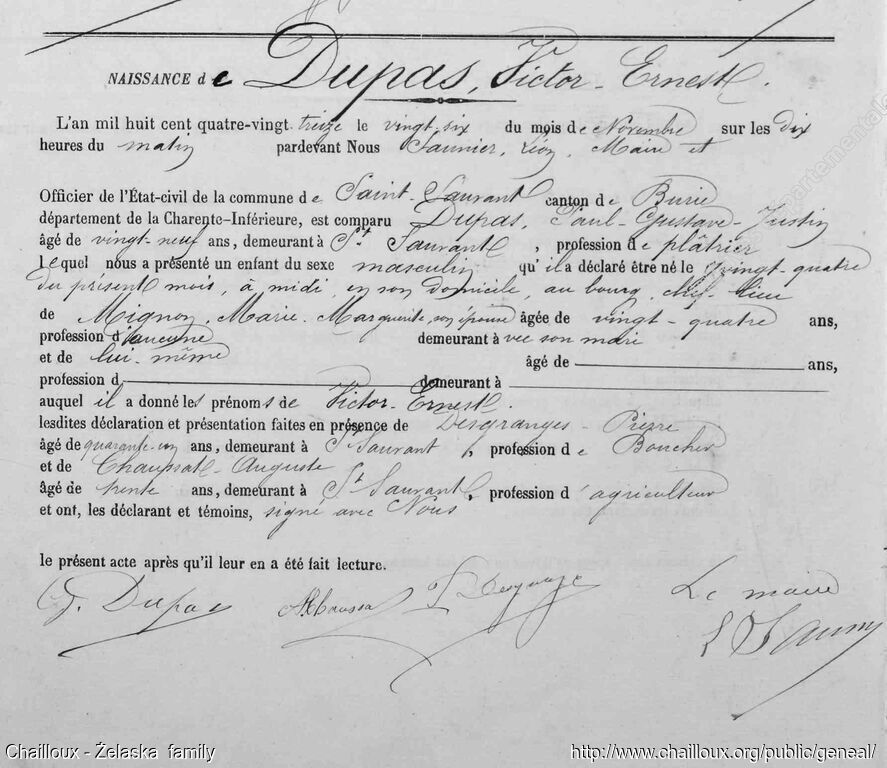 NAISSANCE de Dupas, Victor-Ernest.
L'an mil huit cent quatre-vingt treize le vingt-six du mois de Novembre sur les dix
heures du matin pardevant Nous Saunier, Léon, Maire et
Officier de l'État-civil de la commune de Saint-Sauvant canton de Burie
département de la Charente-Inférieure, est comparu Dupas, Paul-Gustave-Justin
âgé de vingt-neuf ans, demeurant à St Sauvant, profession de plâtrier
lequel nous a présenté un enfant du sexe masculin qu'il a déclaré être né le vingt-quatre
du présent mois, à midi, en son domicile, au bourg, chef-lieu
de Mignon, Marie-Marguerite, son épouse âgée de vingt-quatre ans,
profession d'aucune demeurant avec son mari
et de lui-même âgé de ans,
profession d demeurant à
auquel il a donné les prénoms de Victor-Ernest.
lesdites déclaration et présentation faites en présence de Desgranges-Pierre
âgé de quarante-un ans, demeurant à St Sauvant, profession de Boucher
et de Chaussat-Auguste
âgé de trente ans, demeurant à St Sauvant, profession d'agriculteur
et ont, les déclarant et témoins, signé avec Nous
le présent acte après qu'il leur en a été fait lecture.
Dupas
Le maire
Chailloux - Żelaska family http://www.chailloux.org/public/geneal/